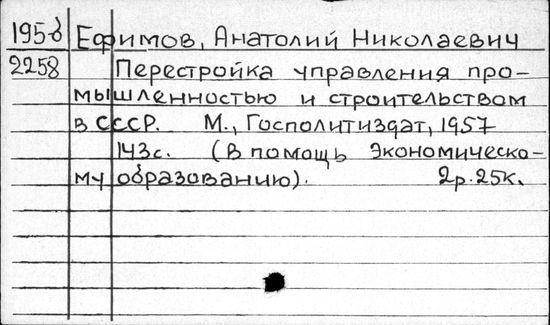 1958 Ефимов, Анатолий Николаевич
2258 Перестройка управления про-
мышленностью и строительством
в СССР. М., Госполитиздат, 1957
143с. (В помощь экономическо-
му образованию). 2р.25к.